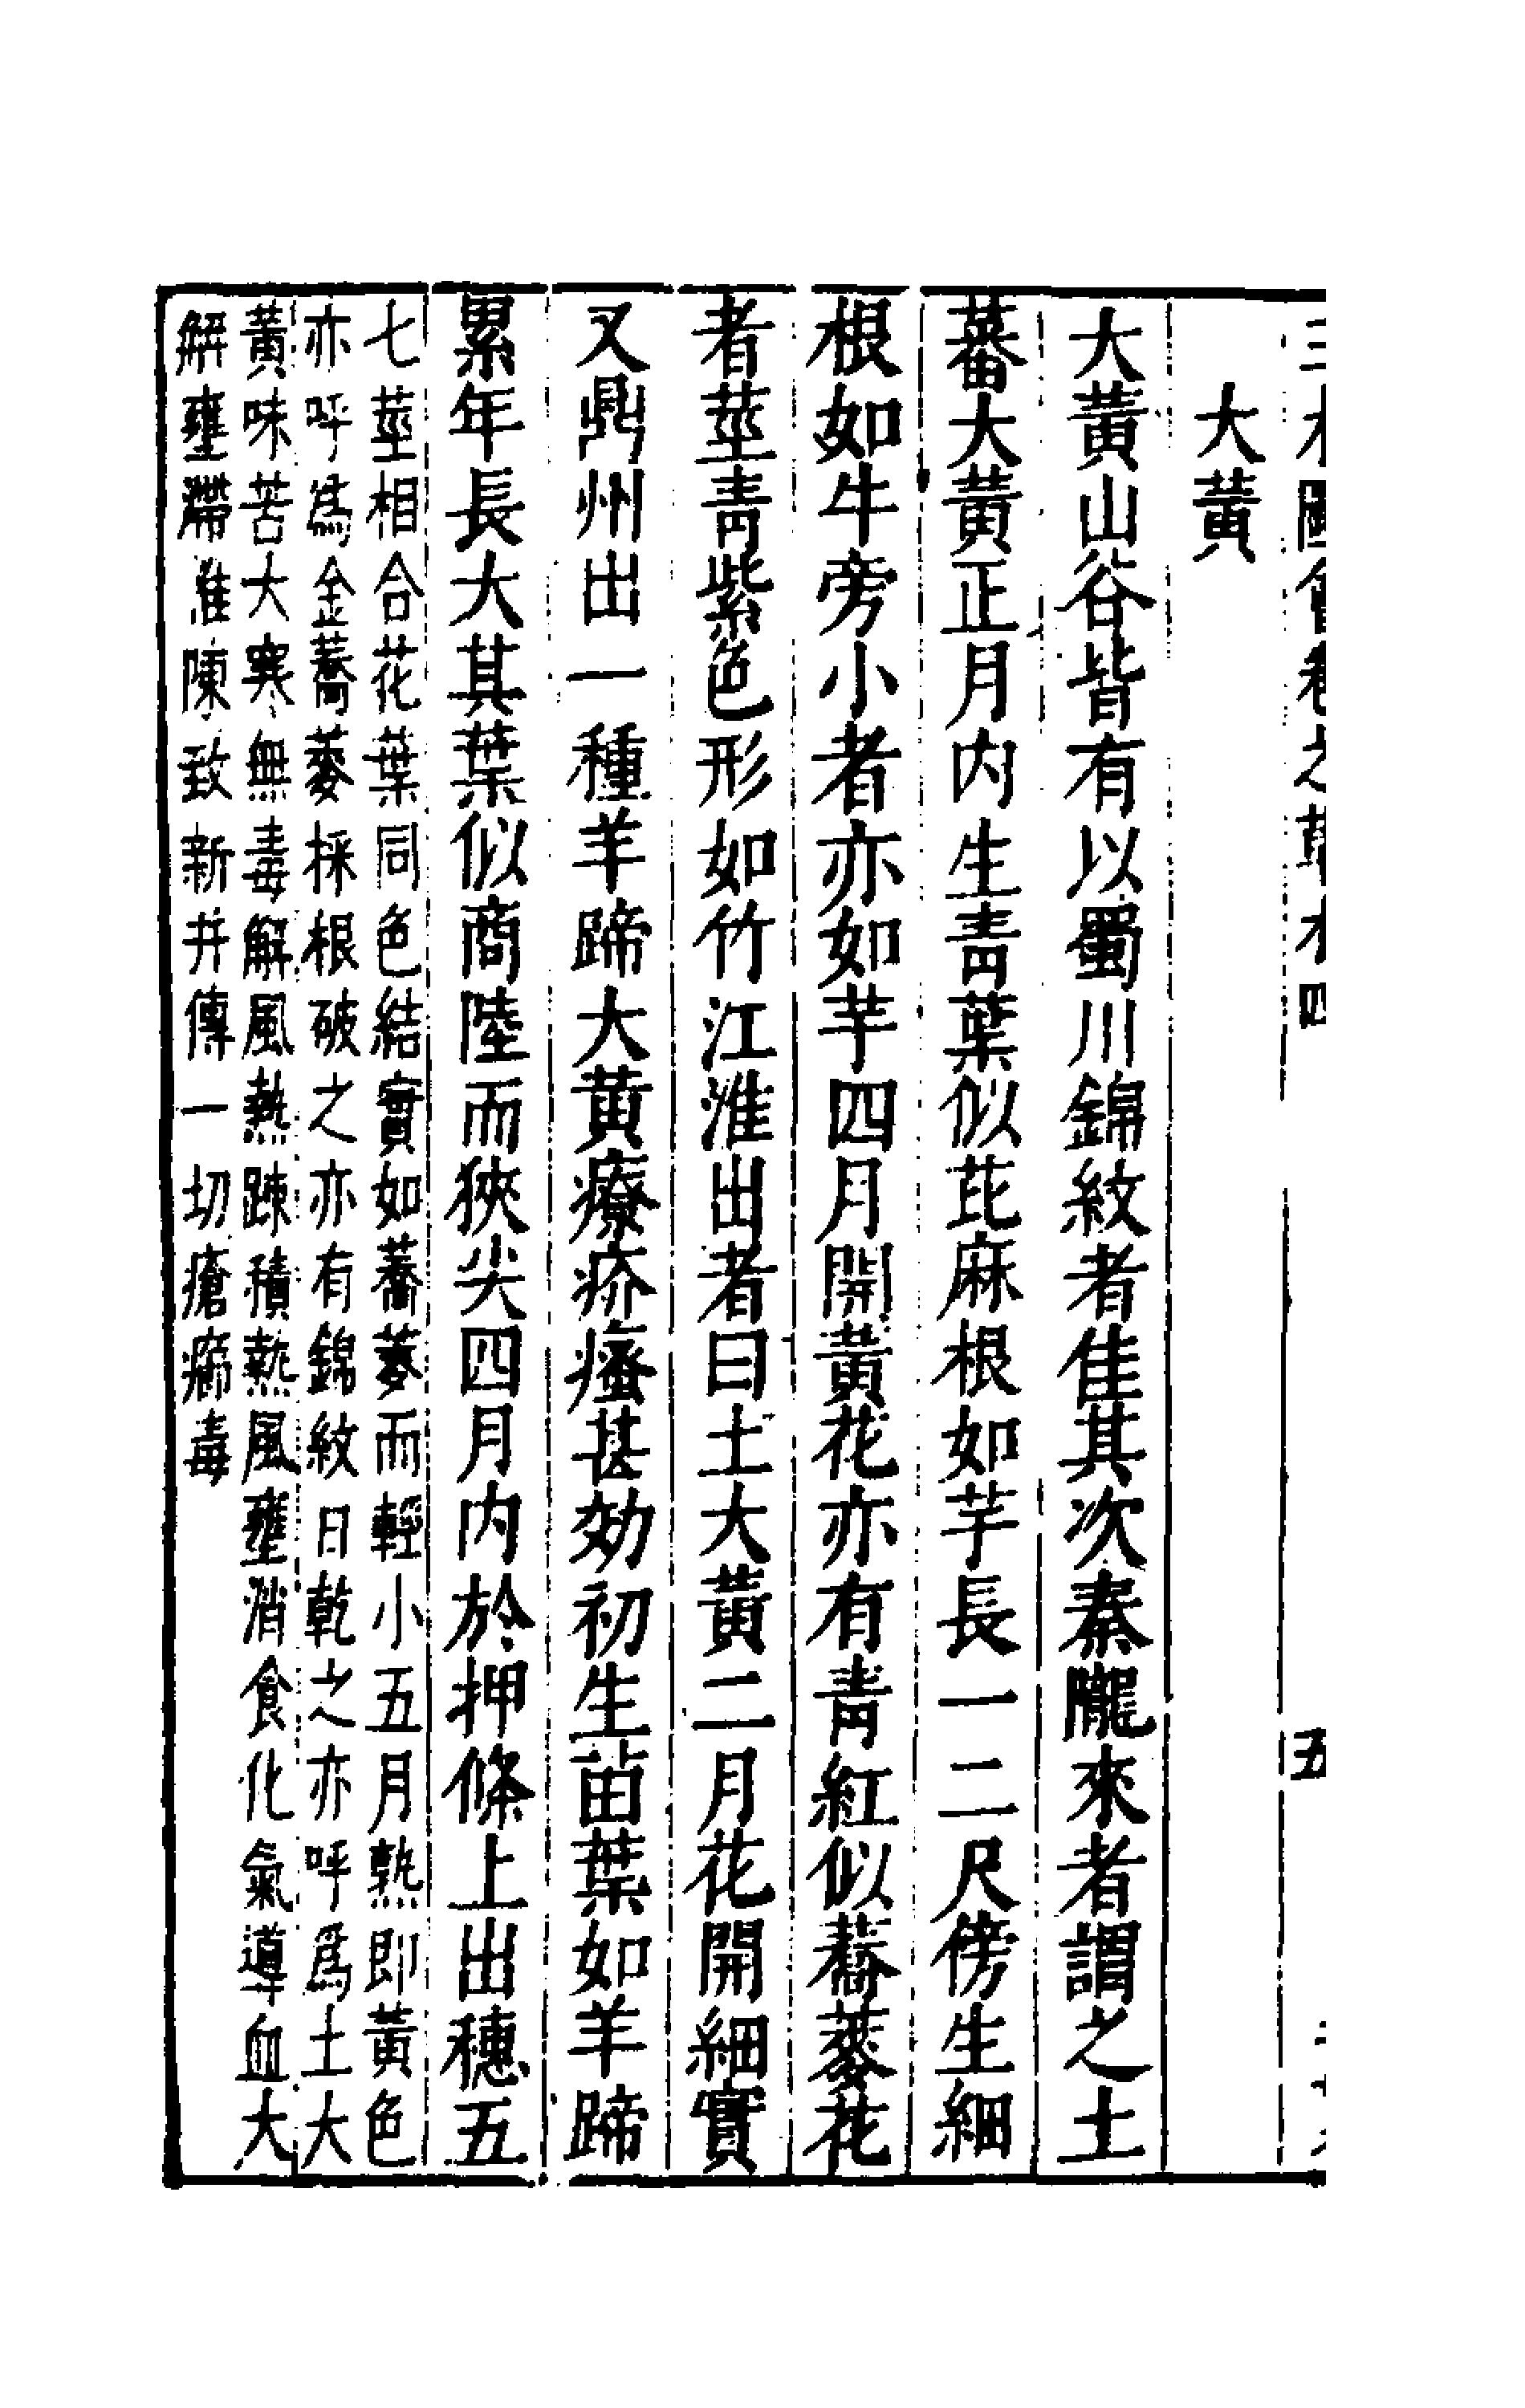 圖會卷之草木四
五
大黃
大黃山谷皆有以蜀川錦紋者佳其次秦隴來者謂之土
蕃大黃正月內生青葉似芘麻根如芋長一二尺傍生細
根如牛旁小者亦如芋四月開黃花亦有青紅似蕎麥花
者莖青紫色形如竹江淮出者曰土大黃二月花開細實
又鼎州出一種羊蹄大黃療疥瘙甚効初生苗葉如羊蹄
累年長大其葉似商陸而狹尖四月內於押條上出穗五
七莖相合花葉同色結實如蕎麥而輕小五月熟即黃色
亦呼為金蕎麥採根破之亦有錦紋日乾之亦呼爲土大
黃味苦大寒無毒解風熱踈積熱風壅消食化氣導血大
解壅滯推陳致新并傅一切瘡癤毒